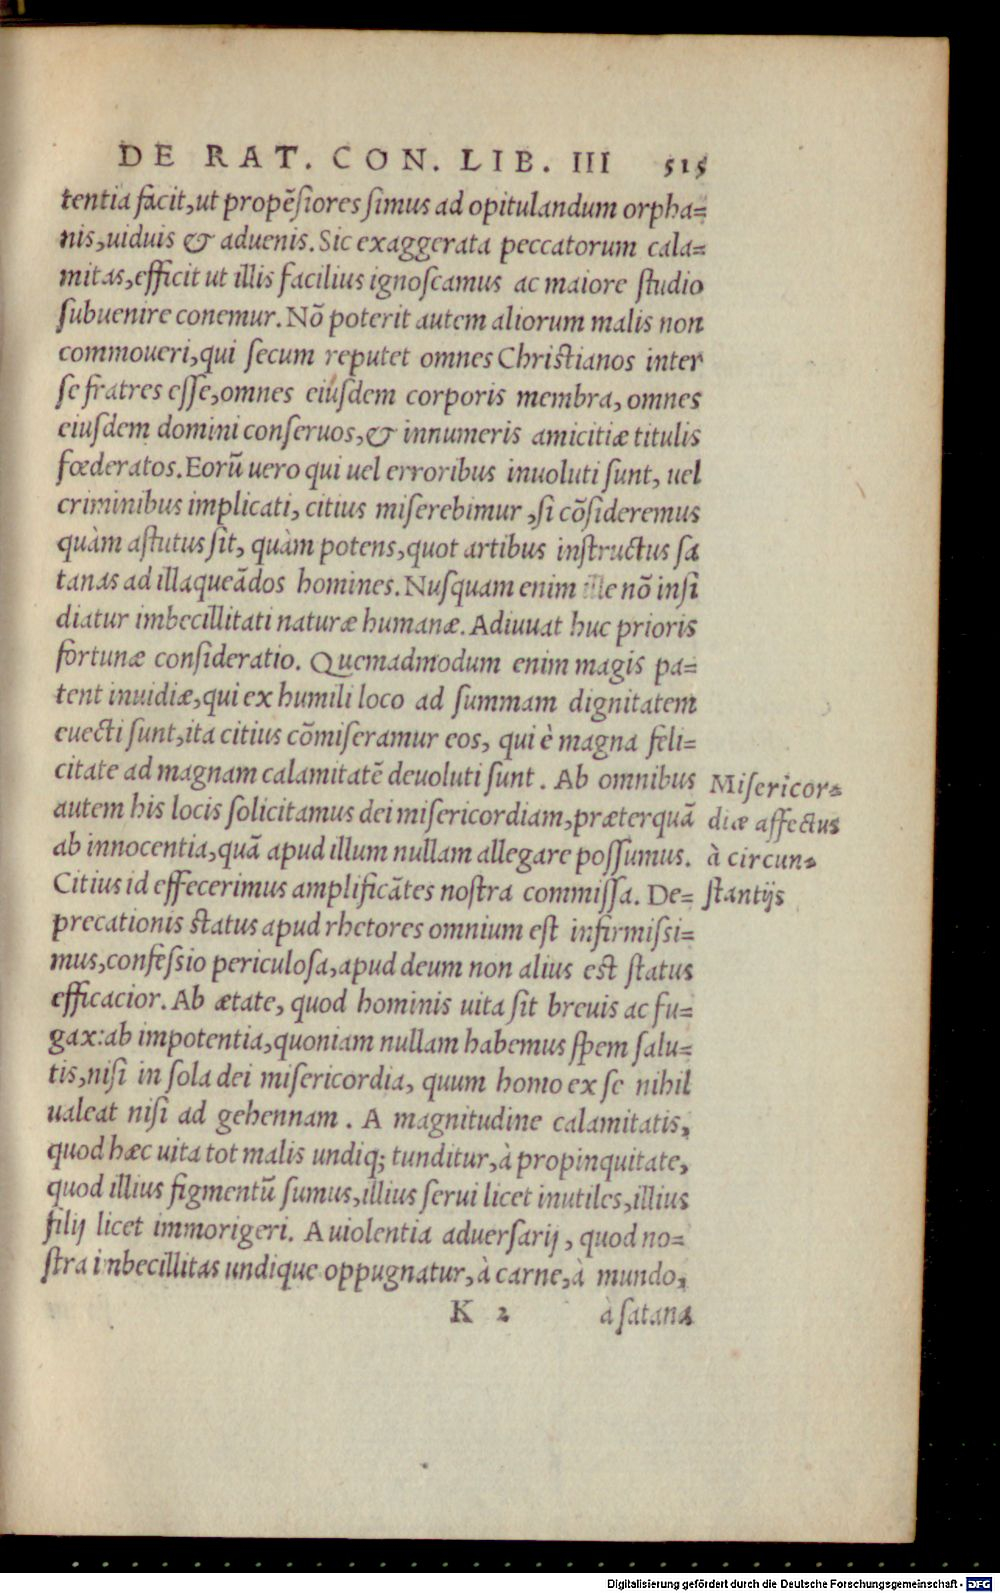 DE RAT. CON. LIB. III 515
tentia facit,ut propẽsiores simus ad opitulandum orpha=
nis,uiduis & aduenis. Sic exaggerata peccatorum cala=
mitas,efficit ut illis facilius ignoscamus ac maiore studio
subuenire conemur. Nõ poterit autem aliorum malis non
commoueri,qui secum reputet omnes Christianos inter
se fratres esse,omnes eiusdem corporis membra, omnes
eiusdem domini conseruos,& innumeris amicitiæ titulis
fœderatos. Eorũ uero qui uel erroribus inuoluti sunt, uel
criminibus implicati, citius miserebimur ,si cõsideremus
quàm astutus sit, quàm potens,quot artibus instructus sa
tanas ad illaqueãdos homines. Nusquam enim ille nõ insi
diatur imbecillitati naturæ humanæ. Adiuuat huc prioris
fortunæ consideratio. Quemadmodum enim magis pa=
tent inuidiæ,qui ex humili loco ad summam dignitatem
euecti sunt,ita citius cõmiseramur eos, qui è magna feli=
citate ad magnam calamitatẽ deuoluti sunt. Ab omnibus
autem his locis solicitamus dei misericordiam,præterquã
ab innocentia,quã apud illum nullam allegare possumus.
Citius id effecerimus amplificãtes nostra commissa. De=
precationis status apud rhetores omnium est infirmissi=
mus,confessio periculosa,apud deum non alius est status
efficacior. Ab ætate, quod hominis uita sit breuis ac fu=
gax:ab impotentia,quoniam nullam habemus spem salu=
tis,nisi in sola dei misericordia, quum homo ex se nihil
ualeat nisi ad gehennam. A magnitudine calamitatis,
quod hæc uita tot malis undiq; tunditur,à propinquitate,
quod illius figmentũ sumus,illius serui licet inutiles,illius
filij licet immorigeri. A uiolentia aduersarij, quod no=
stra imbecillitas undique oppugnatur,à carne,à mundo,
K 2 à satana
Misericor=
diæ affectus
à circun=
stantijs
Digitalisierung gefördert durch die Deutsche Forschungsgemeinschaft - DFG